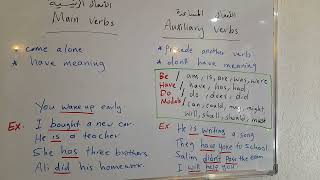 الأفعال الرئيسية
Main verbs
* come alone
* have meaning
You wake up early.
Ex. I bought a new car.
He is a teacher.
She has three brothers.
Ali did his homework.
الأفعال المساعدة
Auxiliary verbs
* Precede another verb
* don't have meaning
Be / am, is, are, was, were
Have / have, has, had
Do / do, does, did
Modals / can, could, may, might
will, shall, should, must
Ex. He is writing a song
They have gone to school.
Salim didn't pass the exam
I will help you